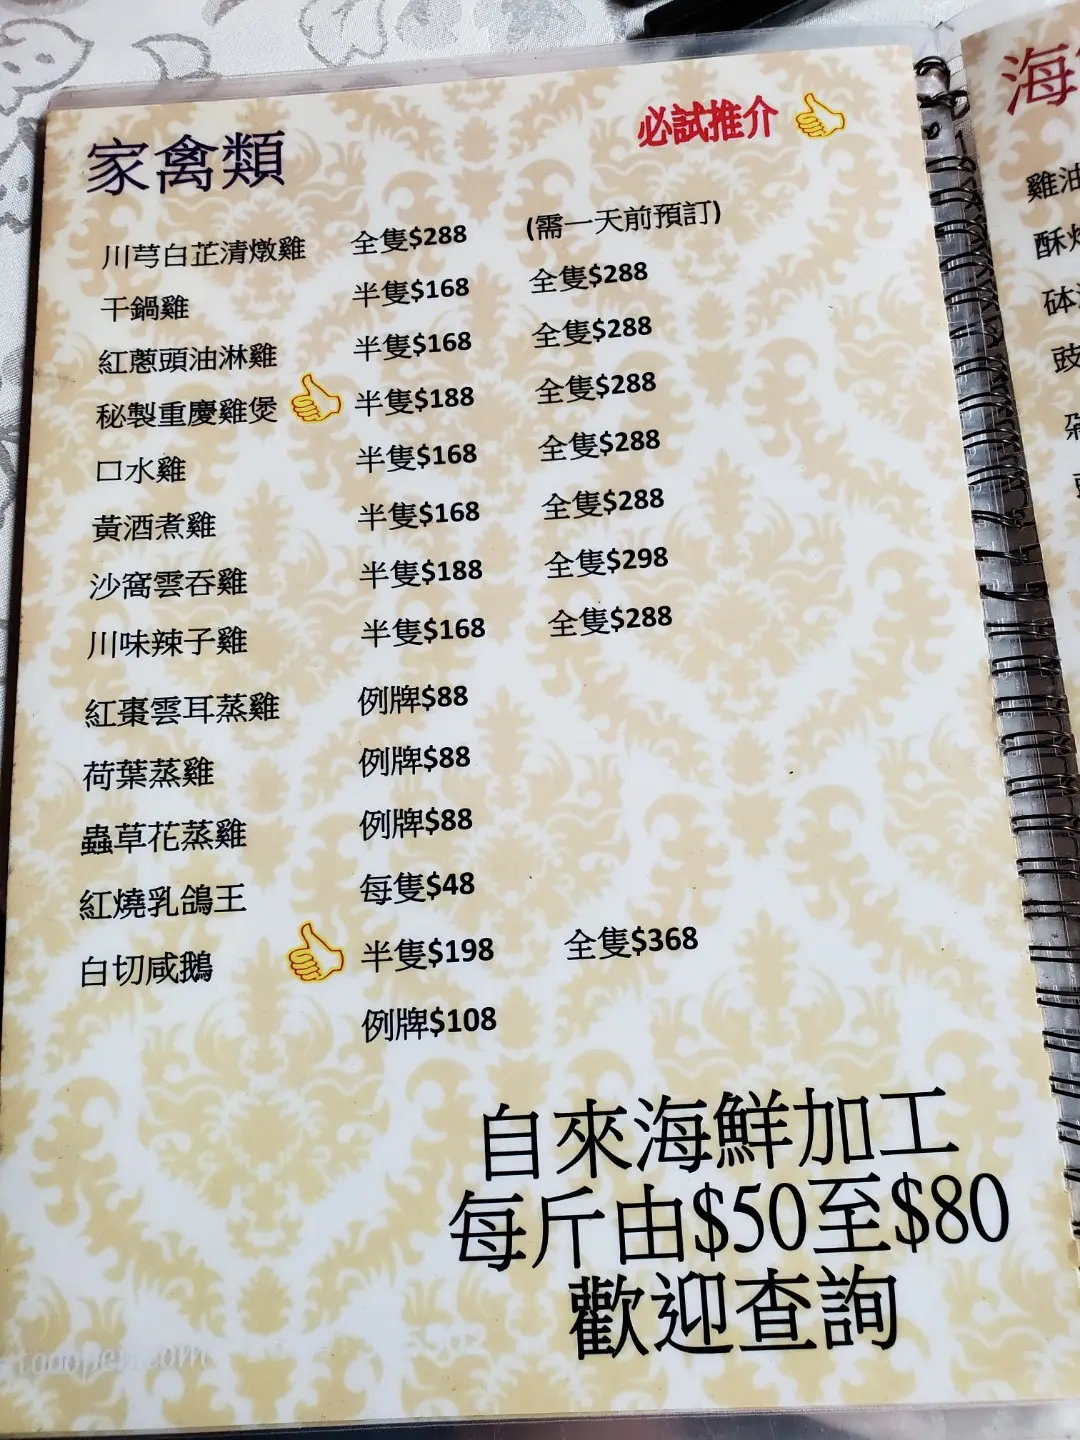 家禽類
必試推介
川芎白芷清燉雞 全隻$288 (需一天前預訂)
干鍋雞 半隻$168 全隻$288
紅蔥頭油淋雞 半隻$168 全隻$288
秘製重慶雞煲 半隻$188 全隻$288
口水雞 半隻$168 全隻$288
黃酒煮雞 半隻$168 全隻$288
沙窩雲吞雞 半隻$188 全隻$298
川味辣子雞 半隻$168 全隻$288
紅棗雲耳蒸雞 例牌$88
荷葉蒸雞 例牌$88
蟲草花蒸雞 例牌$88
紅燒乳鴿王 每隻$48
白切咸鵝 半隻$198 全隻$368
例牌$108
自來海鮮加工
每斤由$50至$80
歡迎查詢
tooopen.com
海
雞油
酥
砵
豉